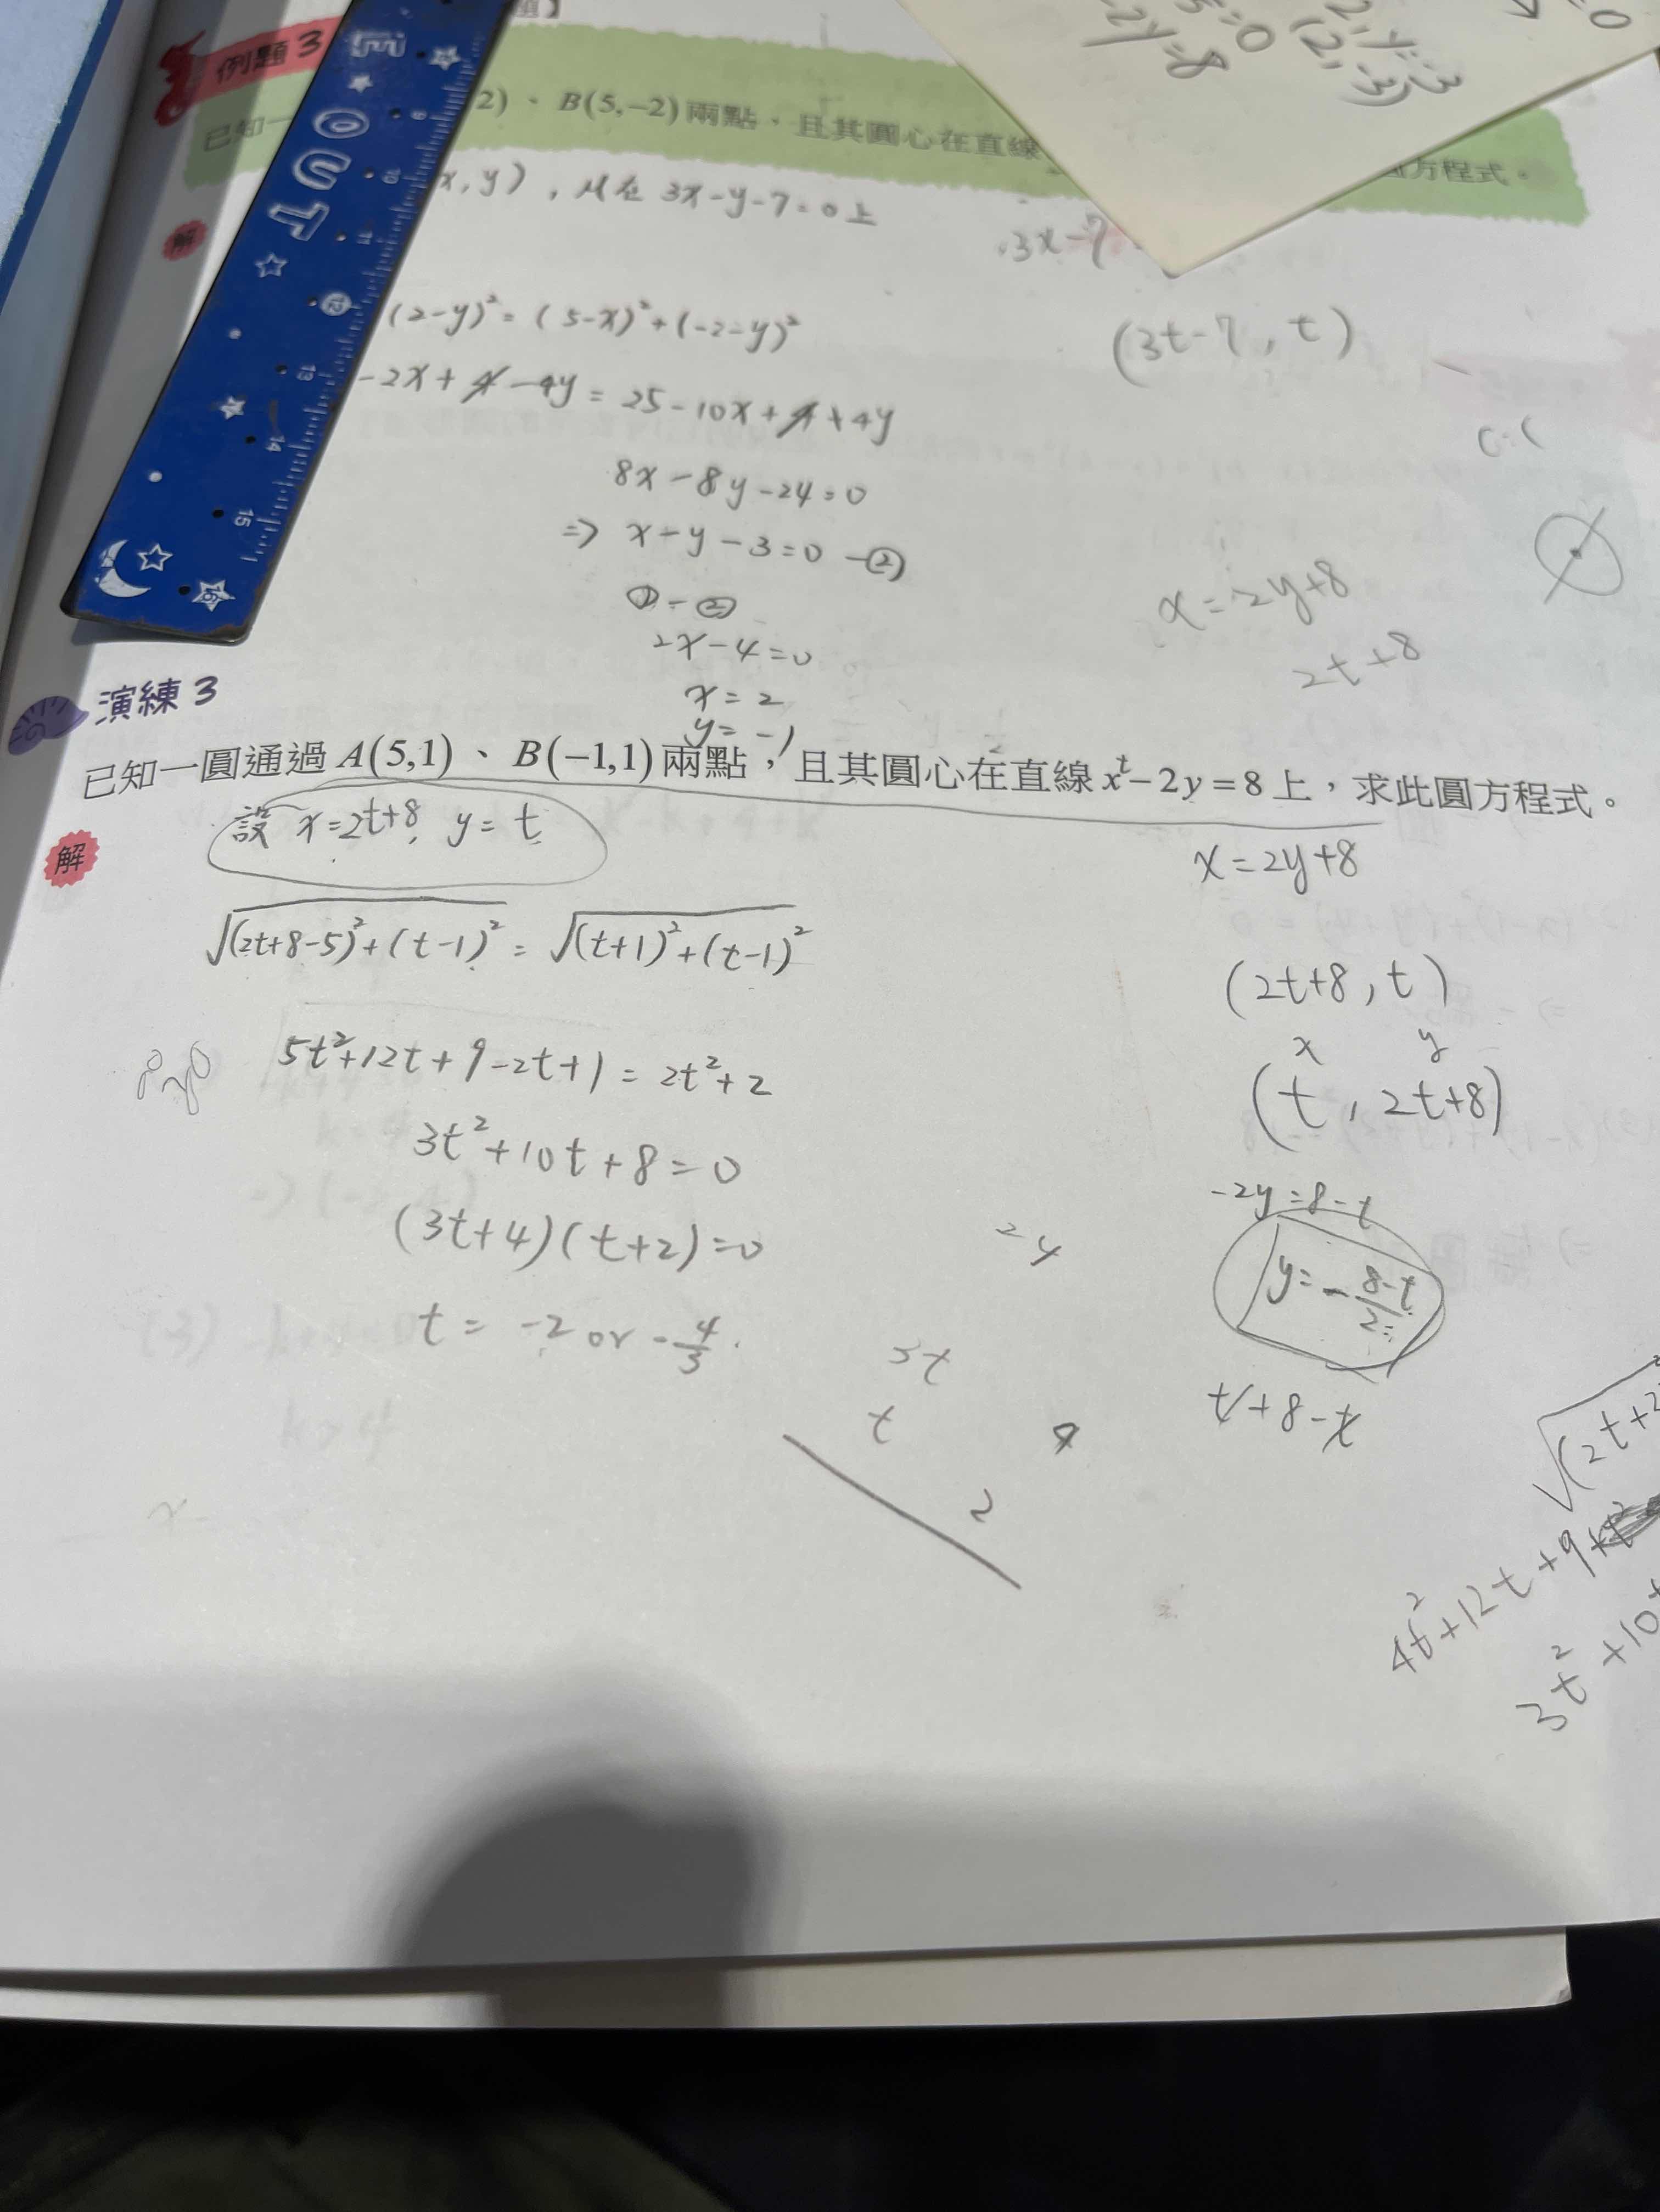 例題3
已知一 2)、B(5,−2)兩點、且其圓心在直線 方程式。
x, y), 在 3x-y-7=0上
3x-7
解
(2-y)²=(5-x)²+(-2-y)²
(3t-7, t)
-2x+4-4y=25-10x+4+4y
8x-8y-24=0
⇒ x-y-3=0 -②
①-②
2x-4=0
x=2
y=-1
x=2y+8
2t+8
-2y=8
=0
(2,-3)
OUT
9
10
11
12
13
14
15
16
演練3
已知一圓通過A(5,1)、B(−1,1)兩點,且其圓心在直線x−2y=8上,求此圓方程式。
t
解
設 x=2t+8, y=t
√(2t+8-5)²+(t-1)² = √(t+1)²+(t-1)²
5t²+12t+9-2t+1=2t²+2
3t²+10t+8=0
(3t+4)(t+2)=0
t= -2 or -4/3
3t
t
4
2
x=2y+8
(2t+8, t)
x y
(t, 2t+8)
-2y=8-t
y=-8-t/2
t+8-t
√(2t+2
4t²+12t+9+t²
3t²+10